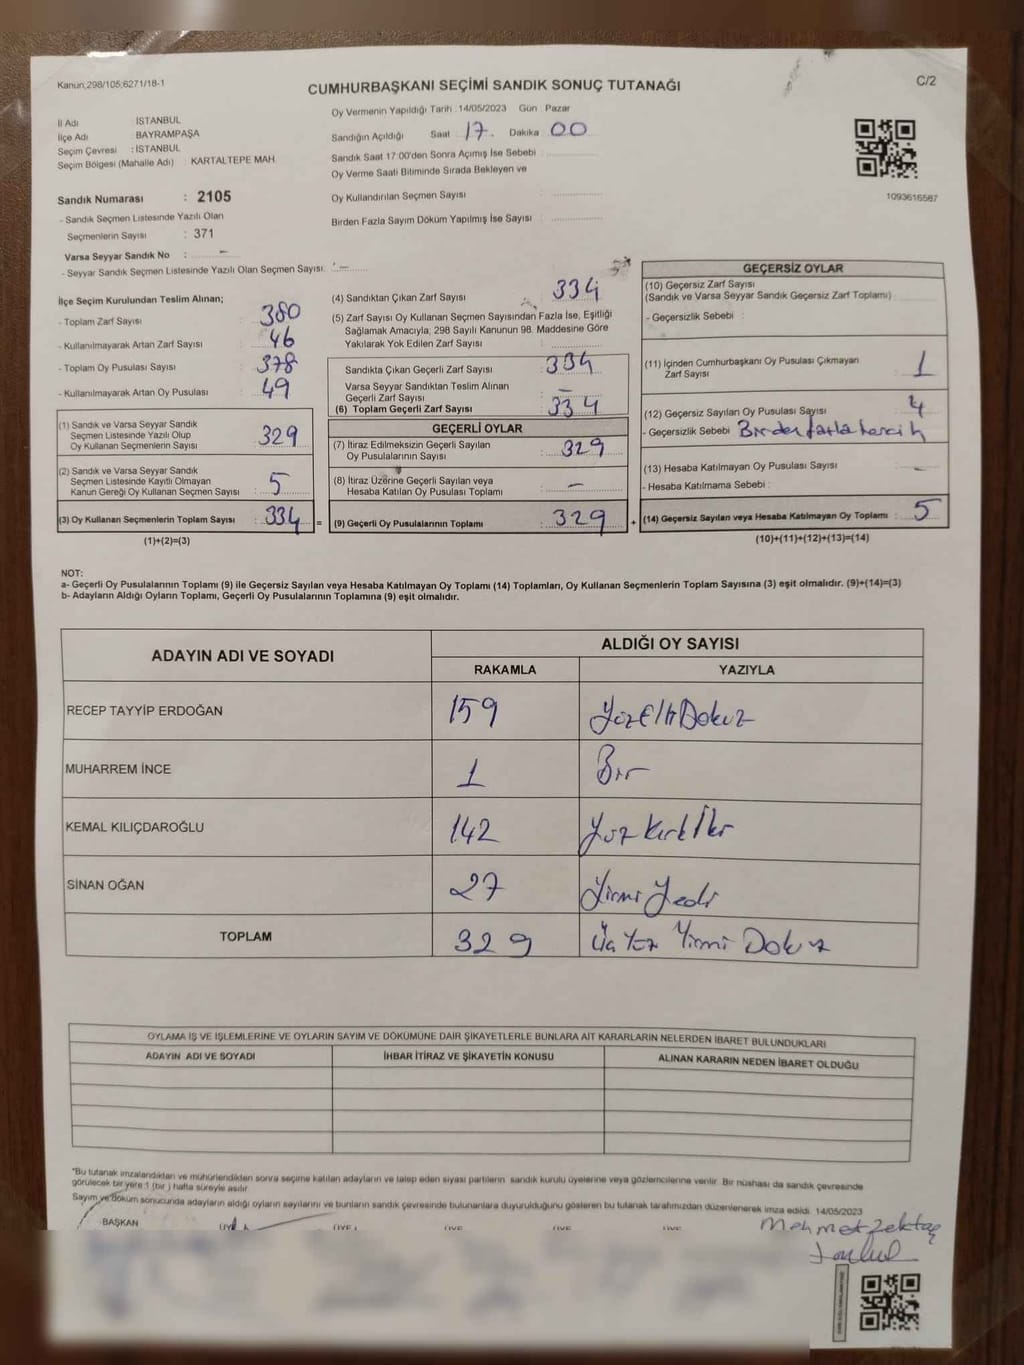 Kanun;298/105;6271/18-1
C/2
CUMHURBAŞKANI SEÇİMİ SANDIK SONUÇ TUTANAĞI
İl Adı İSTANBUL
İlçe Adı BAYRAMPAŞA
Seçim Çevresi : İSTANBUL
Seçim Bölgesi (Mahalle Adı) : KARTALTEPE MAH.
Oy Vermenin Yapıldığı Tarih : 14/05/2023 Gün : Pazar
Sandığın Açıldığı Saat 17. Dakika 00
Sandık Saat 17:00'den Sonra Açımış İse Sebebi :
Oy Verme Saati Bitiminde Sırada Bekleyen ve
Oy Kullandırılan Seçmen Sayısı :
Birden Fazla Sayım Döküm Yapılmış İse Sayısı :
1093616587
Sandık Numarası : 2105
- Sandık Seçmen Listesinde Yazılı Olan
Seçmenlerin Sayısı : 371
Varsa Seyyar Sandık No : -
- Seyyar Sandık Seçmen Listesinde Yazılı Olan Seçmen Sayısı: -
İlçe Seçim Kurulundan Teslim Alınan;
- Toplam Zarf Sayısı : 380
- Kullanılmayarak Artan Zarf Sayısı : 46
- Toplam Oy Pusulası Sayısı : 378
- Kullanılmayarak Artan Oy Pusulası : 49
(1) Sandık ve Varsa Seyyar Sandık
Seçmen Listesinde Yazılı Olup
Oy Kullanan Seçmenlerin Sayısı : 329
(2) Sandık ve Varsa Seyyar Sandık
Seçmen Listesinde Kayıtlı Olmayan
Kanun Gereği Oy Kullanan Seçmen Sayısı : 5
(3) Oy Kullanan Seçmenlerin Toplam Sayısı : 334 =
(1)+(2)=(3)
(4) Sandıktan Çıkan Zarf Sayısı : 334
(5) Zarf Sayısı Oy Kullanan Seçmen Sayısından Fazla İse, Eşitliği
Sağlamak Amacıyla, 298 Sayılı Kanunun 98. Maddesine Göre
Yakılarak Yok Edilen Zarf Sayısı :
Sandıkta Çıkan Geçerli Zarf Sayısı : 334
Varsa Seyyar Sandıktan Teslim Alınan
Geçerli Zarf Sayısı : -
(6) Toplam Geçerli Zarf Sayısı : 334
GEÇERLİ OYLAR
(7) İtiraz Edilmeksizin Geçerli Sayılan
Oy Pusulalarının Sayısı : 329
(8) İtiraz Üzerine Geçerli Sayılan veya
Hesaba Katılan Oy Pusulası Toplamı : -
(9) Geçerli Oy Pusulalarının Toplamı : 329 +
GEÇERSİZ OYLAR
(10) Geçersiz Zarf Sayısı
(Sandık ve Varsa Seyyar Sandık Geçersiz Zarf Toplamı)
- Geçersizlik Sebebi :
(11) İçinden Cumhurbaşkanı Oy Pusulası Çıkmayan
Zarf Sayısı : 1
(12) Geçersiz Sayılan Oy Pusulası Sayısı : 4
- Geçersizlik Sebebi : Birden fazla tercih
(13) Hesaba Katılmayan Oy Pusulası Sayısı : -
- Hesaba Katılmama Sebebi :
(14) Geçersiz Sayılan veya Hesaba Katılmayan Oy Toplamı : 5
(10)+(11)+(12)+(13)=(14)
NOT:
a- Geçerli Oy Pusulalarının Toplamı (9) ile Geçersiz Sayılan veya Hesaba Katılmayan Oy Toplamı (14) Toplamları, Oy Kullanan Seçmenlerin Toplam Sayısına (3) eşit olmalıdır. (9)+(14)=(3)
b- Adayların Aldığı Oyların Toplamı, Geçerli Oy Pusulalarının Toplamına (9) eşit olmalıdır.
ADAYIN ADI VE SOYADI ALDIĞI OY SAYISI
RAKAMLA YAZIYLA
RECEP TAYYİP ERDOĞAN 159 Yüz Elli Dokuz
MUHARREM İNCE 1 Bir
KEMAL KILIÇDAROĞLU 142 Yüz Kırk İki
SİNAN OĞAN 27 Yirmi Yedi
TOPLAM 329 Üç Yüz Yirmi Dokuz
OYLAMA İŞ VE İŞLEMLERİNE VE OYLARIN SAYIM VE DÖKÜMÜNE DAİR ŞİKAYETLERLE BUNLARA AİT KARARLARIN NELERDEN İBARET BULUNDUKLARI
ADAYIN ADI VE SOYADI İHBAR İTİRAZ VE ŞİKAYETİN KONUSU ALINAN KARARIN NEDEN İBARET OLDUĞU
"Bu tutanak imzalandıktan ve mühürlendikten sonra seçime katılan adayların ve talep eden siyasi partilerin sandık kurulu üyelerine veya gözlemcilerine verilir. Bir nüshası da sandık çevresinde
görülecek bir yere 1 (bir) hafta süreyle asılır.
Sayım ve döküm sonucunda adayların aldığı oyların sayılarını ve bunların sandık çevresinde bulunanlara duyurulduğunu gösteren bu tutanak tarafımızdan düzenlenerek imza edildi. 14/05/2023
BAŞKAN ÜYE ÜYE ÜYE ÜYE
Mehmet